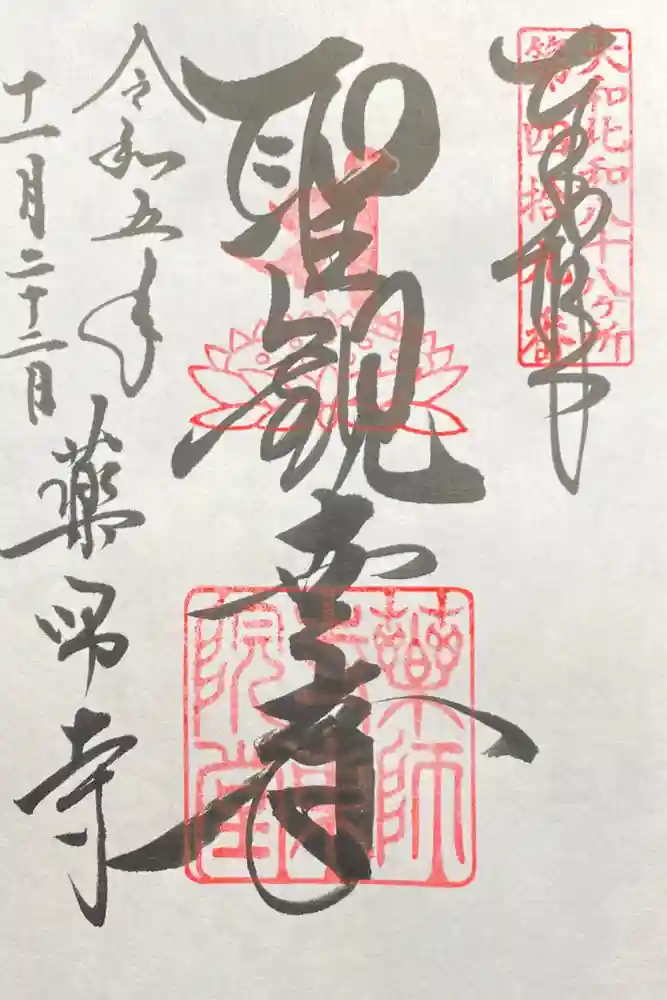 奉拝
大和北和八十八ヶ所
第四拾九番
聖観世音
薬師
院堂
令和五年
十一月二十二日
薬師寺